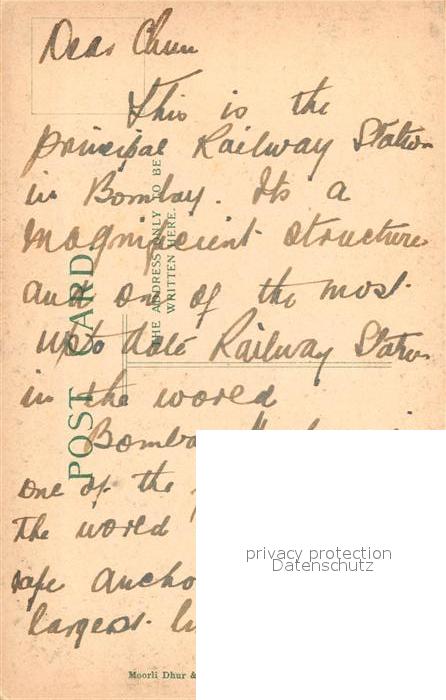 Dear Chum
This is the
principal Railway Station
in Bombay. Its a
magnificient structure
and one of the most
upto date Railway Station
in the world
Bombay
one of the
the world
safe
largest
POST CARD
THE ADDRESS ONLY TO BE
WRITTEN HERE.
privacy protection
Datenschutz
Moorli Dhur &